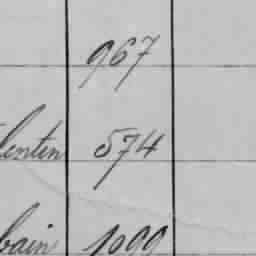 967
lentin 574
bain 1099